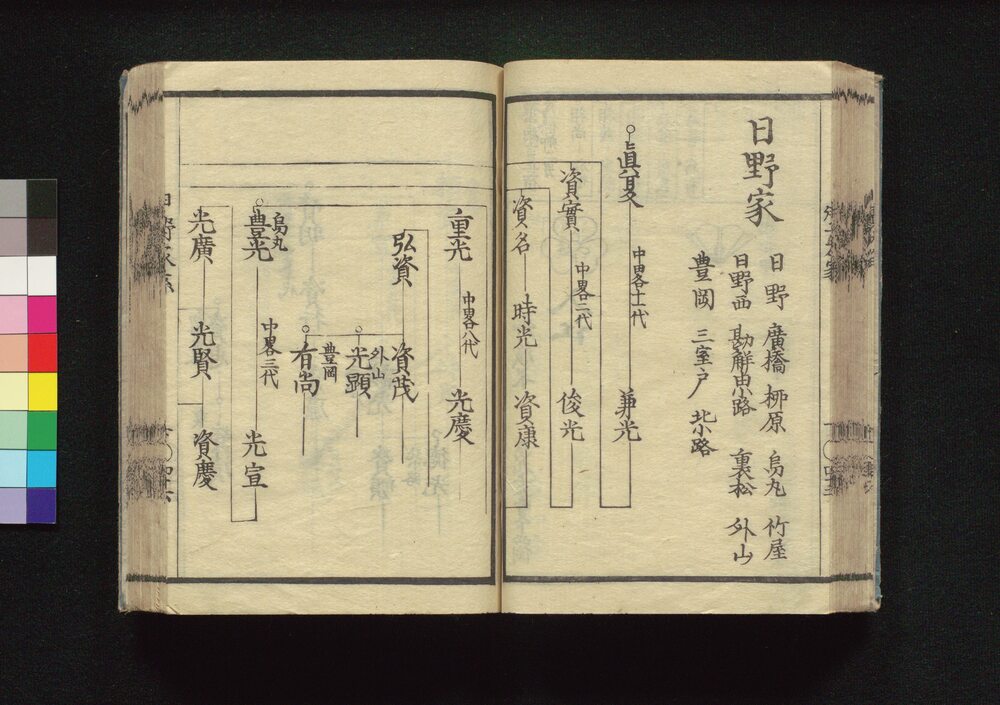 日野家
日野 廣橋 栁原 烏丸 竹屋
日野西 勘觧由小路 裏松 外山
豊岡 三室戸 北小路
眞夏 中畧十一代 兼光
資實 中畧二代 俊光
資名 時光 資康
重光 中畧八代 光慶
弘資 資茂
外山
光顕
豊岡
有尚
烏丸
豊光 中畧三代 光宣
光廣 光賢 資慶